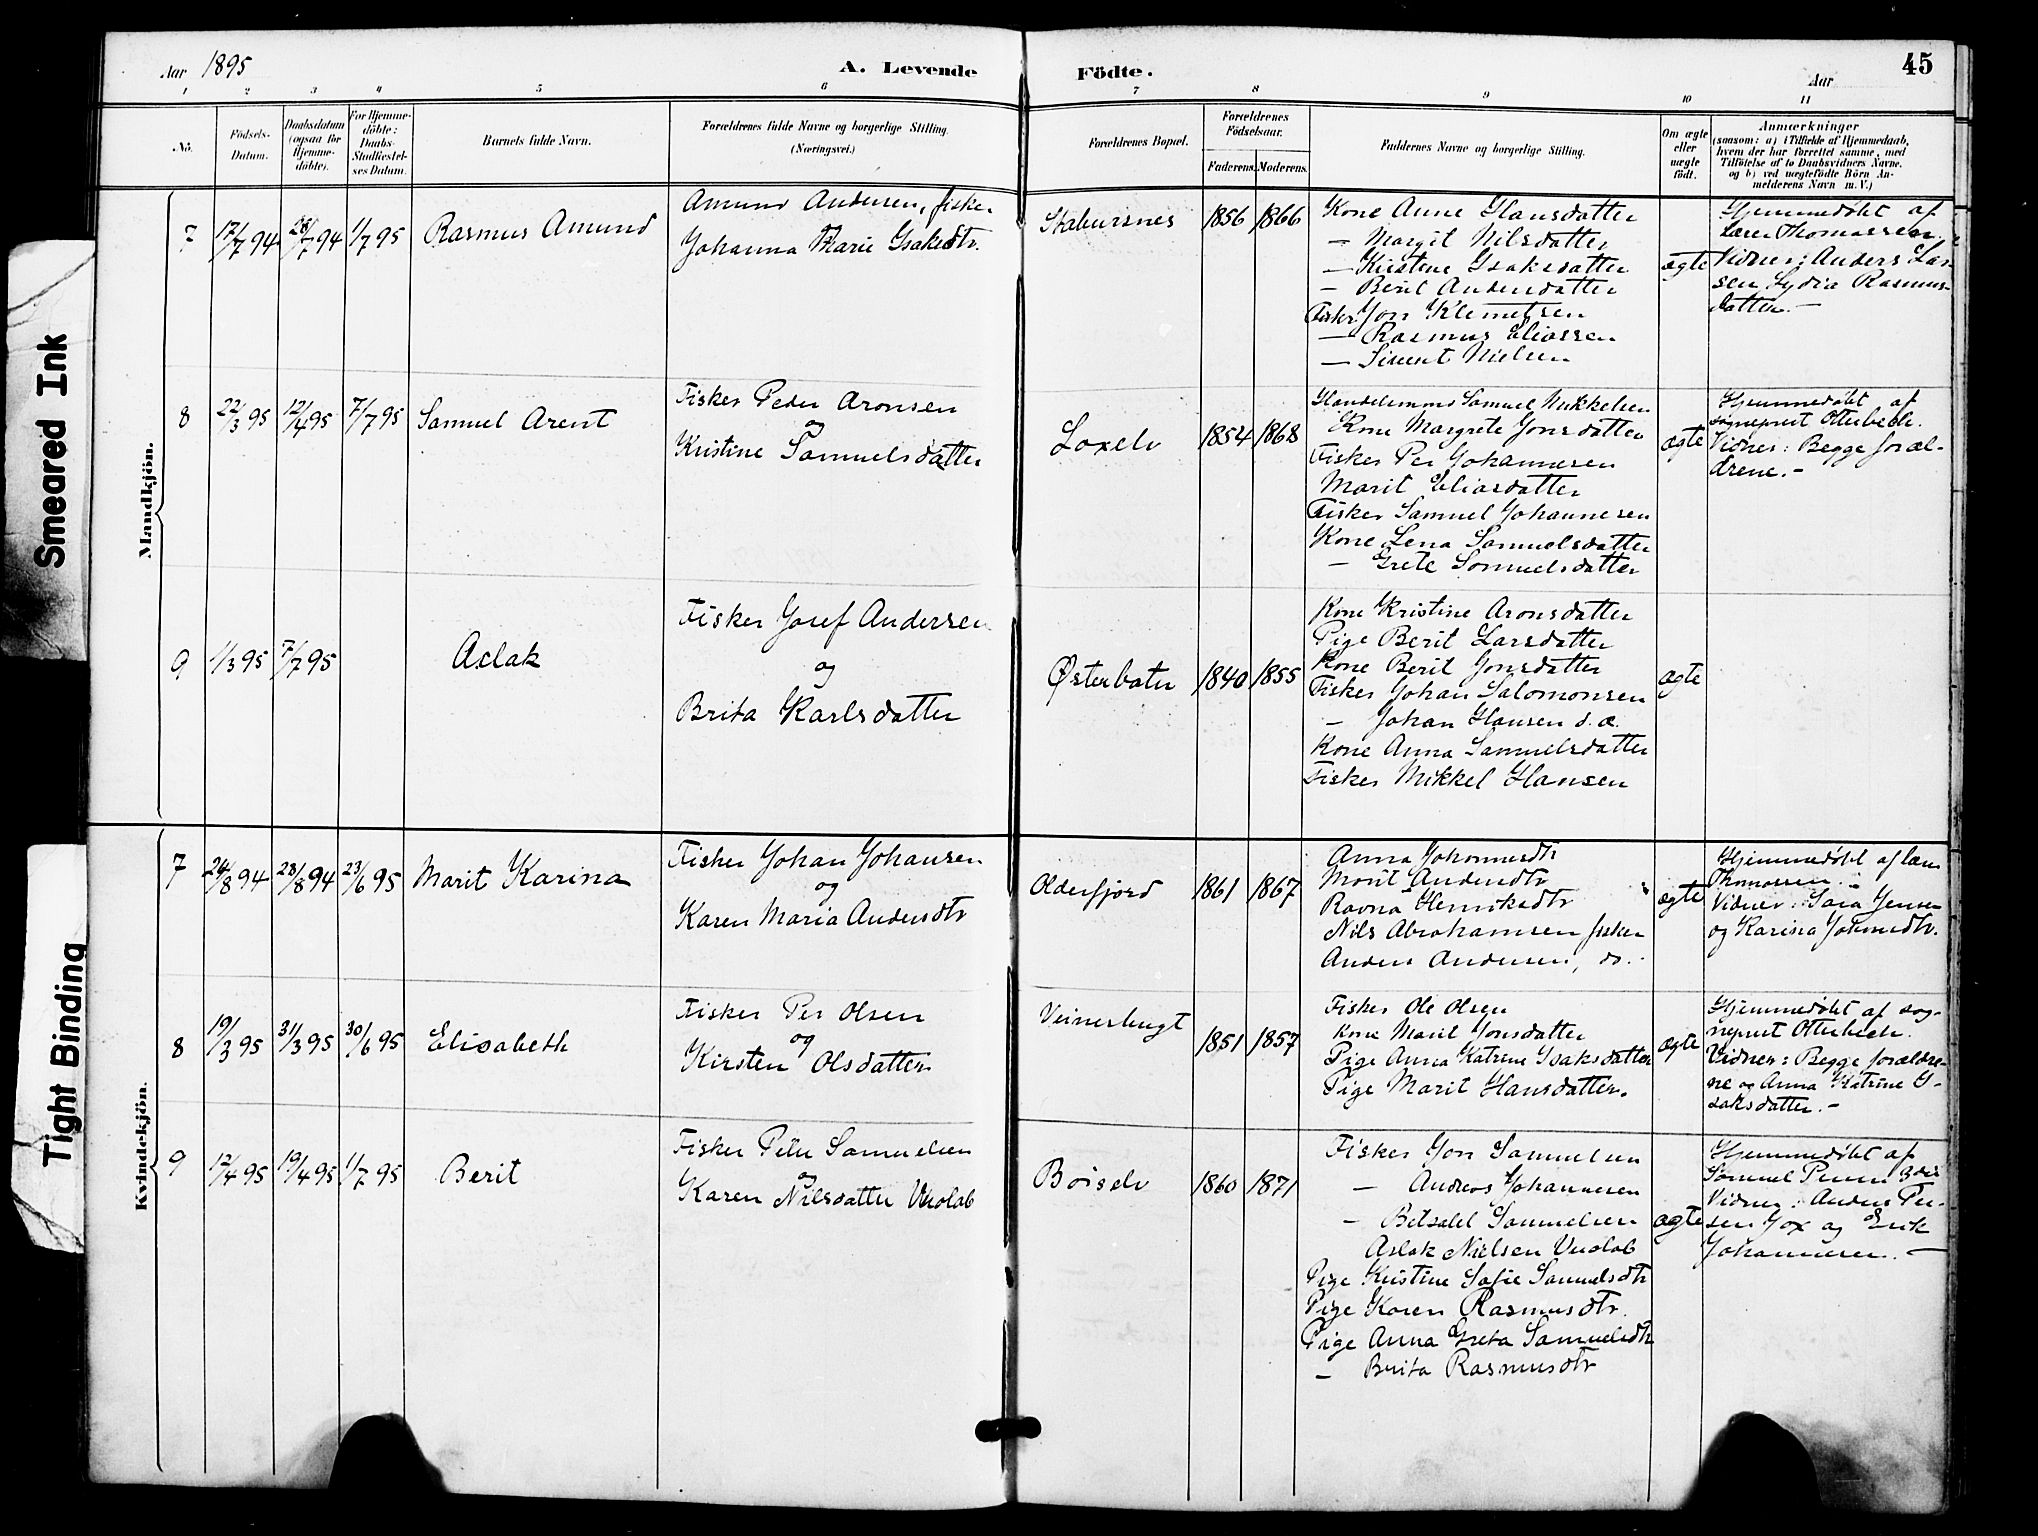 Aar 1895
A. Levende
Födte.
Aar
45
1 2 3 4 5 6 7 8 9 10 11
No.
Födsels-
Datum.
Daabsdatum
(ogsaa for
Hjemme-
döbte).
For Hjemme-
döbte:
Daabs-
Stadfæstel-
ses Datum.
Barnets fulde Navn.
Forældrenes fulde Navne og borgerlige Stilling.
(Næringsvei.)
Forældrenes Bopæl.
Forældrenes
Födselsaar.
Faderens. Moderens.
Faddernes Navne og borgerlige Stilling.
Om ægte
eller
uægte
födt.
Anmærkninger
(saasom: a) i Tilfælde af Hjemmedaab,
hvem der har forrettet samme, med
Tilföielse af to Daabsvidners Navne.
og b) ved uægtefödte Börn An-
melderens Navn m. V.)
Mandkjön.
7 17/7 94 28/7 94 1/7 95 Rasmus Amund
Amund Andersen, fisker
Johanna Marie Isaksdtr.
Stabursnes 1856 1866
Kone Anne Hansdatter
— Margit Nilsdatter
— Kirstene Isaksdatter
— Berit Andersdatter
Fisker Jon Klemetsen
— Rasmus Eliassen
— Sivert Nielsen
ægte
Hjemmedøbt af
Lærer Thomassen.
Vidner: Anders Lar-
sen, Lydia Rasmus-
datter. —
8 22/3 95 12/4 95 7/7 95 Samuel Arent
Fisker Peder Aronsen
og
Kristine Samuelsdatter
Laxelv 1854 1868
Handelsmand Samuel Mikkelsen
Kone Margrete Jonsdatter
Fisker Per Johannesen
Marit Eliasdatter
Fisker Samuel Johannesen
Kone Lena Samuelsdatter
— Grete Samuelsdatter
ægte
Hjemmedøbt af
sogneprest Otterbech.
Vidner: Begge foræl-
drene. —
9 1/3 95 7/7 95 Aslak
Fisker Josef Andersen
og
Brita Karlsdatter
Østerbotn 1840 1855
Kone Kristine Aronsdatter
Pige Berit Larsdatter
Kone Berit Jonsdatter
Fisker Johan Salomonsen
— Johan Hansen d.æ.
Kone Anna Samuelsdatter
Fisker Mikkel Hansen
ægte
Kvindekjön.
7 24/8 94 28/8 94 23/6 95 Marit Karina
Fisker Johan Johansen
og
Karen Maria Andersdtr
Olderfjord 1861 1867
Anna Johannesdtr
Marit Andersdtr
Ravna Henriksdtr
Nils Abrahamsen fisker
Anders Andersen, do.
ægte
Hjemmedøbt af lærer
Thomassen. —
Vidner: Sara Jensen
og Karina Johnsdtr.
8 19/3 95 31/3 95 30/6 95 Elisabeth
Fisker Per Olsen
og
Kirsten Olsdatter
Veinesbugt
1851 1857
Fisker Ole Olsen
Kone Marit Jonsdatter
Pige Anna Katrine Isaksdatter
Pige Marit Hansdatter.
ægte
Hjemmedøbt af sog-
neprest Otterbech.
Vidner: Begge forældre-
ne og Anna Katrine I-
saksdatter. —
9 12/4 95 19/4 95 1/7 95 Berit
Fisker Peder Samuelsen
og
Karen Nilsdatter Vuolab
Børselv 1860 1871
Fisker Jon Samuelsen
— Andreas Johannesen
— Betsalel Samuelsen
Aslak Nielsen Vuolab
Pige Kristine Sofie Samuelsdtr
Pige Karen Rasmusdtr.
Pige Anna Greta Samuelsdtr
— Brita Rasmusdtr
ægte
Hjemmedøbt af
Samuel Persen
Vidner: Anders Per-
sen Jox og Erik
Johannesen. —
Smeared Ink
Tight Binding